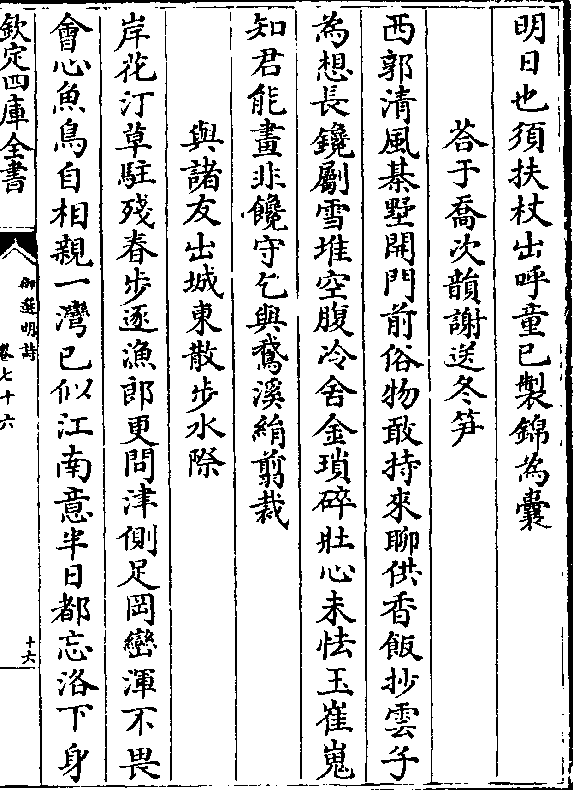 明日也須扶杖出呼童已製錦為囊
荅于喬次韻謝送冬笋
西郭清風棊墅開門前俗物敢持來聊供香飯抄雲子
為想長鑱劚雪堆空腹冷含金瑣碎壯心未怯玉崔嵬
知君能畫非饞守乞與鵞溪絹剪裁
與諸友出城東散步水際
岸花汀草駐殘春步逐漁郎更問津側足岡巒渾不畏
會心魚鳥自相親一灣已似江南意半日都忘洛下身
欽定四庫全書
御選明詩
卷七十六
十六